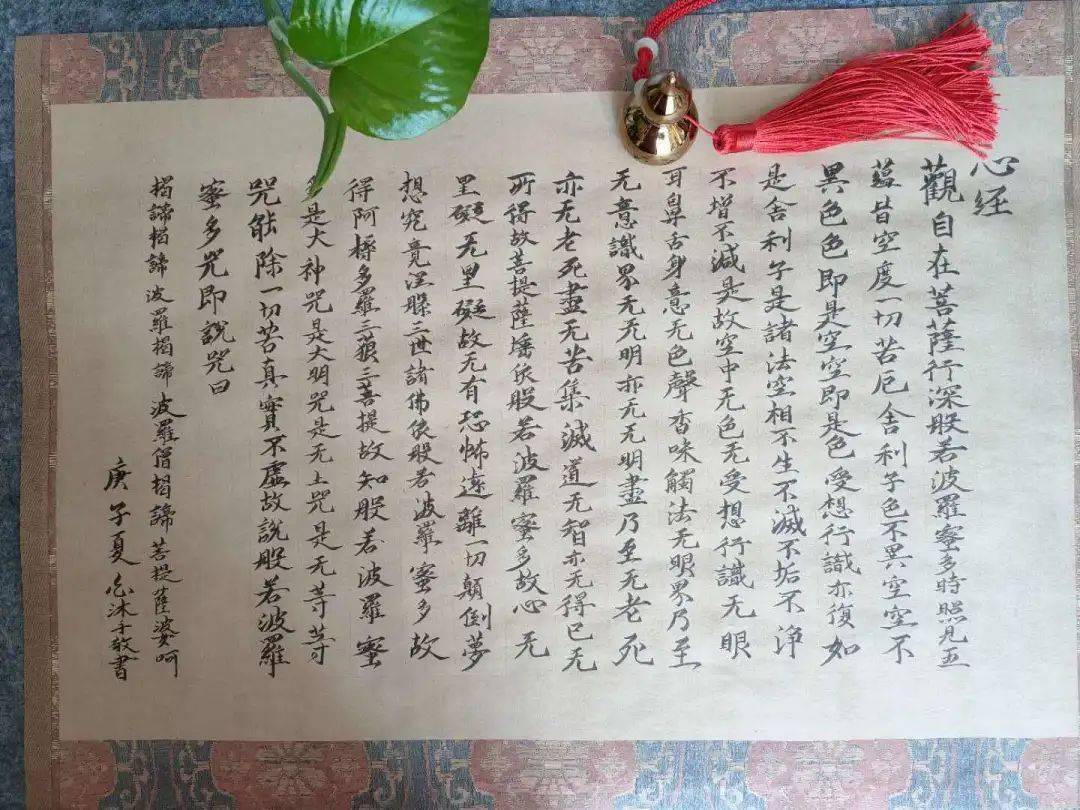 心经
觀自在菩薩行深般若波羅蜜多時照見五
蕴皆空度一切苦厄舍利子色不異空空不
異色色即是空空即是色受想行識亦復如
是舍利子是諸法空相不生不滅不垢不净
不增不減是故空中无色无受想行識无眼
耳鼻舌身意无色聲香味觸法无眼界乃至
无意識界无无明亦无无明盡乃至无老死
亦无老死盡无苦集滅道无智亦无得已无
所得故菩提薩埵依般若波羅蜜多故心无
罣礙无罣礙故无有恐怖遠離一切顛倒夢
想究竟涅槃三世諸佛依般若波羅蜜多故
得阿耨多羅三藐三菩提故知般若波羅蜜
是大神咒是大明咒是无上咒是无等等
咒能除一切苦真實不虛故說般若波羅
蜜多咒即說咒曰
揭諦揭諦 波羅揭諦 波羅僧揭諦 菩提薩婆呵
庚子夏 沐手敬書